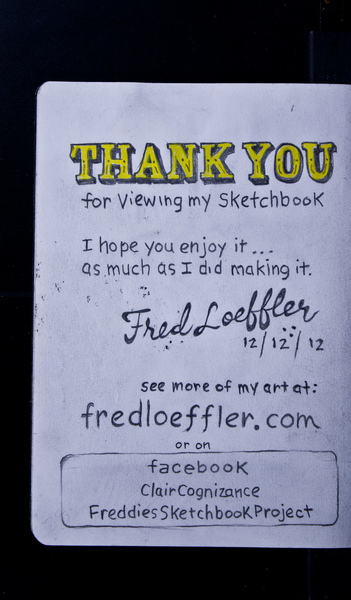 THANK YOU
for viewing my Sketchbook
I hope you enjoy it...
as much as I did making it.
Fred Loeffler
12/12/12
see more of my art at:
fredloeffler.com
or on
facebook
ClairCognizance
FreddiesSketchbookProject